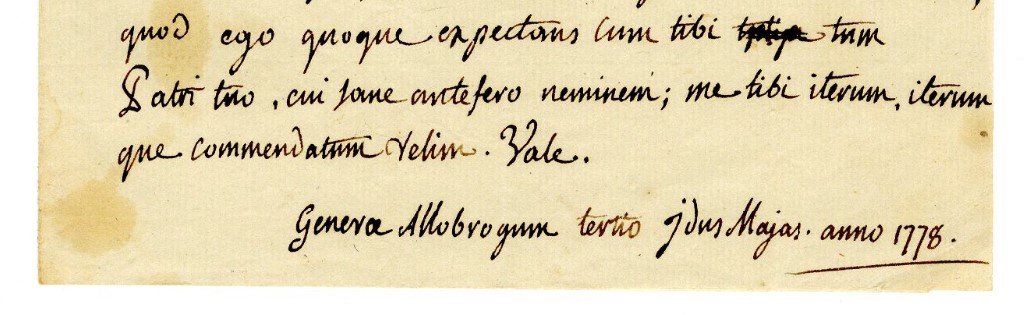 quod ego quoque expectans cum tibi tum
Patri tuo, cui sane antefero neminem; me tibi iterum, iterum
que commendatum velim. Vale.
Genevæ Allobrogum tertio jdus Majas. anno 1778.